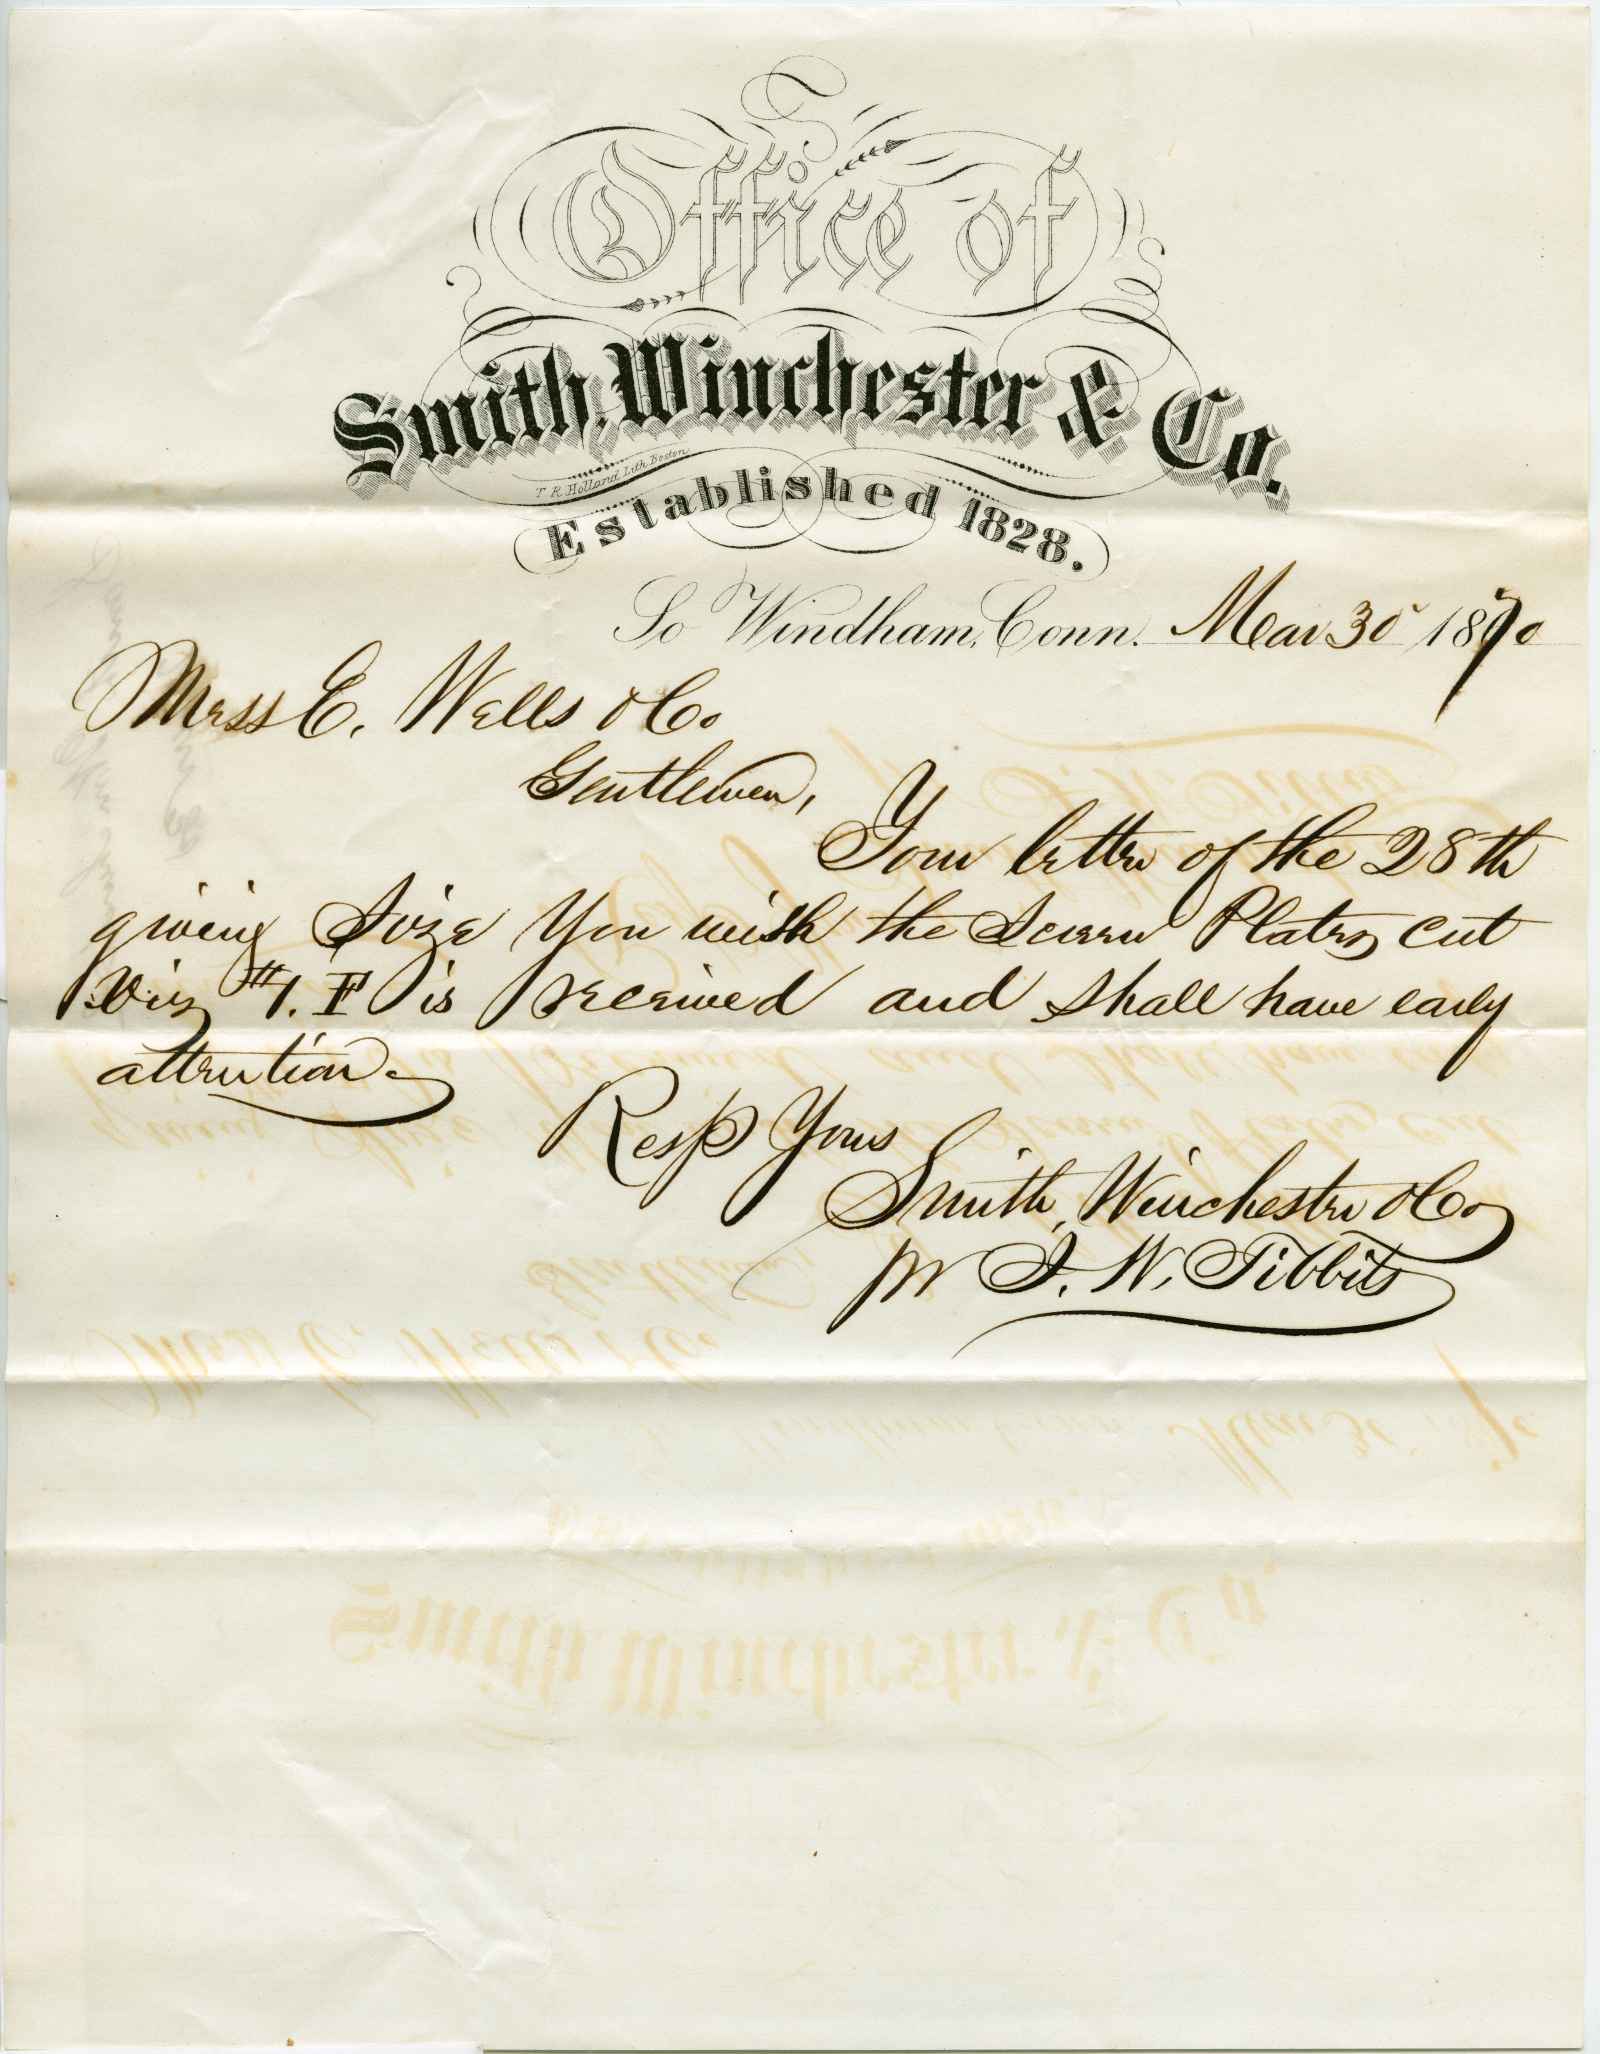 Office of
Smith, Winchester & Co.
T. R. Holland Lith. Boston
Established 1828.
So Windham, Conn. Mar 30 1870
Mess E. Wells & Co
Gentlemen,
Your letter of the 28th
giving Size You wish the Screen Plates cut
Viz #1. F is received and shall have early
attention.
Resp Yours
Smith, Winchester & Co
pr J. W. Tibbits